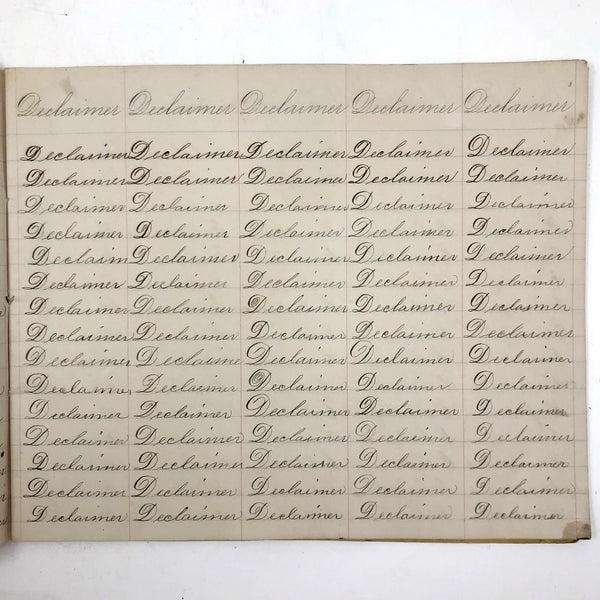 3
Declaimer Declaimer Declaimer Declaimer Declaimer
Declaimer Declaimer Declaimer Declaimer Declaimer
Declaimer Declaimer Declaimer Declaimer Declaimer
Declaimer Declaimer Declaimer Declaimer Declaimer
Declaimer Declaimer Declaimer Declaimer Declaimer
Declaim Declaimer Declaimer Declaimer Declaimer
Declaimer Declaimer Declaimer Declaimer Declaimer
Declaimer Declaimer Declaimer Declaimer Declaimer
Declaimer Declaimer Declaimer Declaimer Declaimer
Declaimer Declaime Declaimer Declaimer Declaimer
Declaime Declaimer Declaimer Declaimer Declaimer
Declaimer Declaimer Declaimer Declaimer Declaimer
Declaimer Declaimer Declaimer Declaimer Declaimer
Declaimer Declaimer Declaimer Declaimer Declaimer
Declaimer Declaimer Declaimer Declaimer Declaimer
Declaimer Declaimer Declaimer Declaimer Declaimer